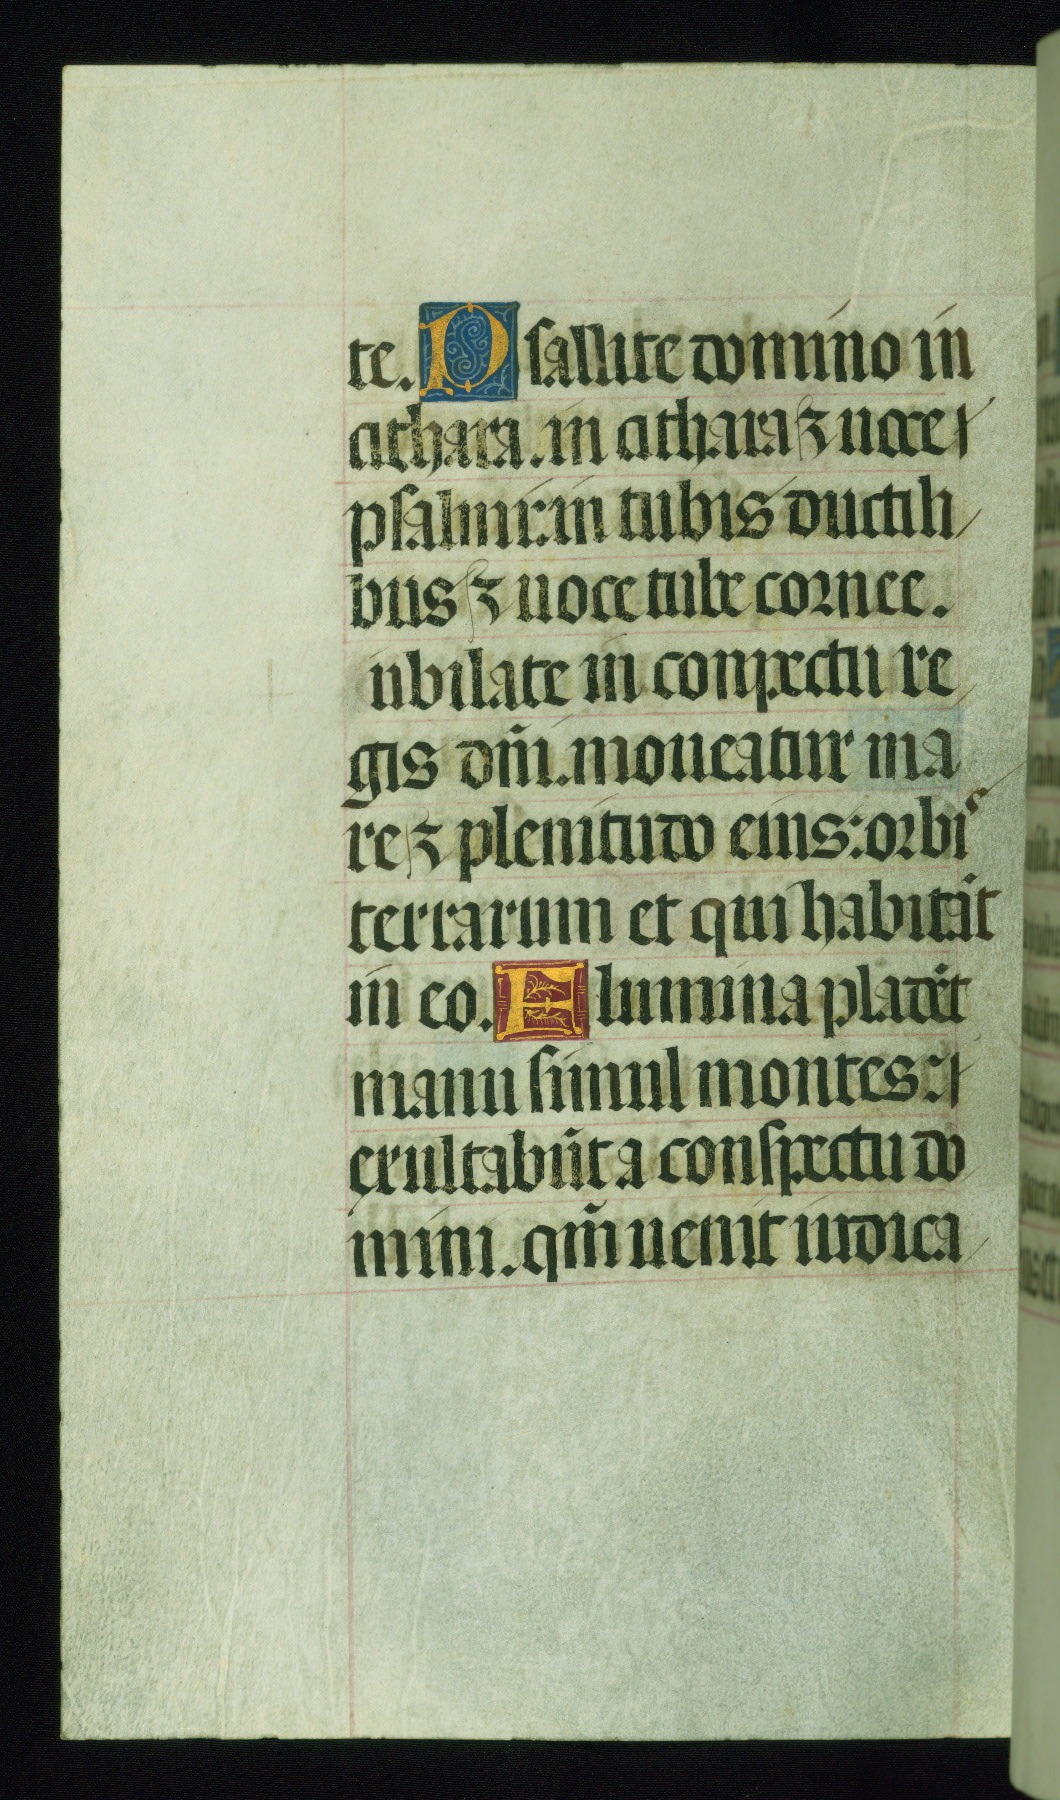 te. Psallite domino in
cithara. in cithara ⁊ uoce
psalmi: in tubis ductili
bus ⁊ uoce tube cornee.
iubilate in conspectu re
gis dñi. moueatur ma
re ⁊ plenitudo eius: orbis
terrarum et qui habitāt
in eo. Flumina plaudēt
manu simul montes:
exultabūt a conspectu do
mini. qm̄ uenit iudica